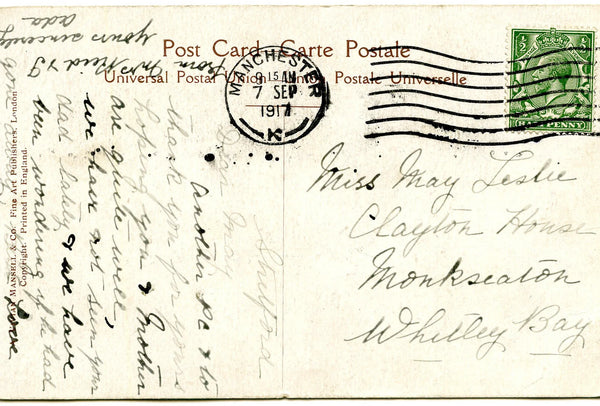 Post Card. Carte Postale
Universal Postal Union. Union Postale Universelle
MANCHESTER
8 15 AM
7 SEP
1917
K
½ d
HALFPENNY
MANSELL & Co. Fine Art Publishers, London
Copyright. Printed in England.
Miss May Leslie
Clayton House
Monkseaton
Whitley Bay
Shilford
Dear May
Another p.c & to
thank you for yours
hoping you & Mother
are quite well,
we have not seen your
dad lately & we have
been wondering if he had
gone
love
from Mrs Reed & I
yours sincerely
Ada